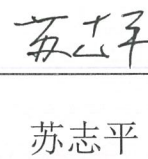 苏志平
苏志平